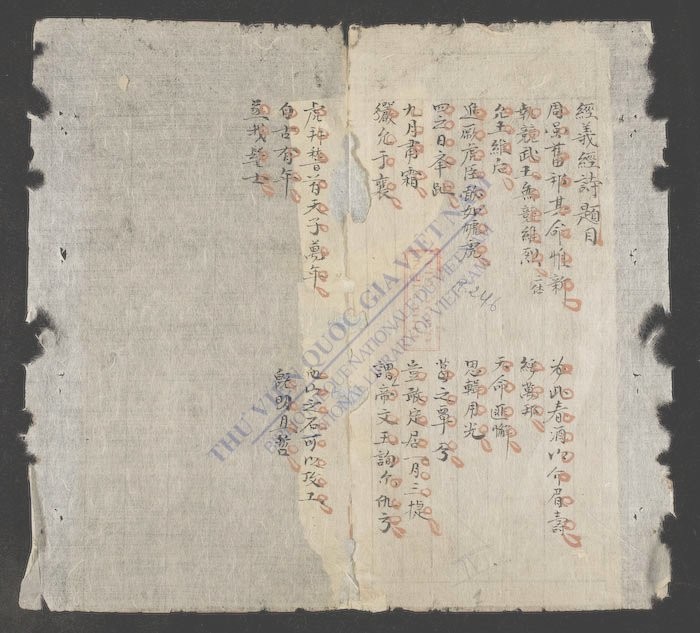 經義經詩題目
周虽舊邦其命惟新
為此春酒以介眉壽
執競武王無競維烈
綏萬邦
允王維后
天命匪懈
進厥虎臣闞如虓虎
思輯用光
四之日舉趾
葛之覃兮
九月肅霜
豈敢定居一月三捷
玁允于襄
謂帝文王詢尔仇方
虎拜稽首天子萬年
他山之石可以攻玉
自古有年
既明且哲
烝我髦士
246
THƯ VIỆN QUỐC GIA VIỆT NAM
BIBLIOTHÈQUE NATIONALE DU VIETNAM
NATIONAL LIBRARY OF VIETNAM